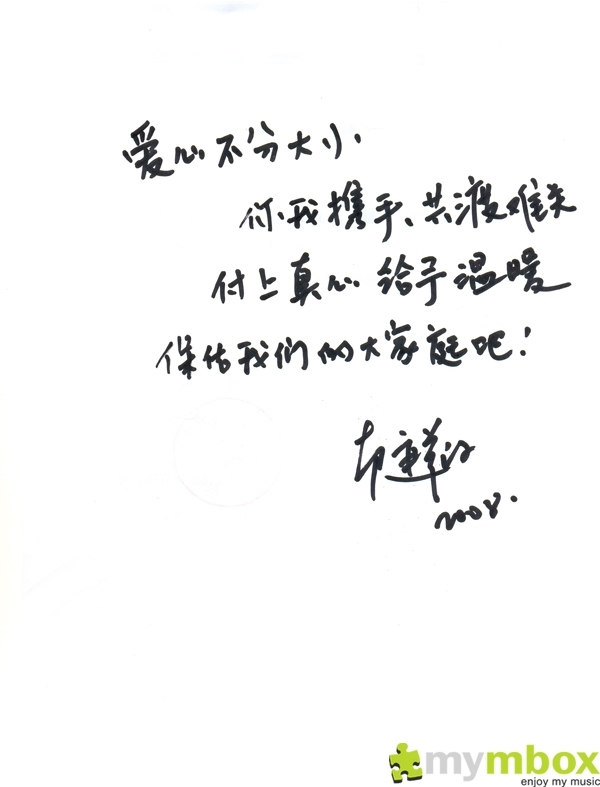 爱心不分大小.
你我携手、共渡难关
付上真心 给予温暖
保佑我们的大家庭吧!
2008.
mymbox
enjoy my music